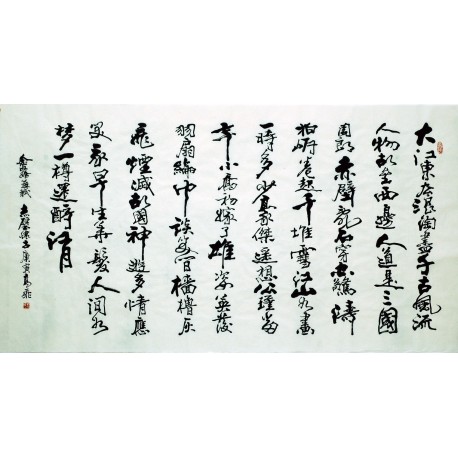 大江東去浪淘盡千古風流
人物故壘西邊人道是三國
周郎赤壁亂石穿空驚濤
拍岸卷起千堆雪江山如畫
一時多少豪傑遙想公瑾當
年小喬初嫁了雄姿英發
羽扇綸巾談笑間檣櫓灰
飛煙滅故國神遊多情應
笑我早生華髮人間如
夢一樽還酹江月
赤壁懷古庚寅